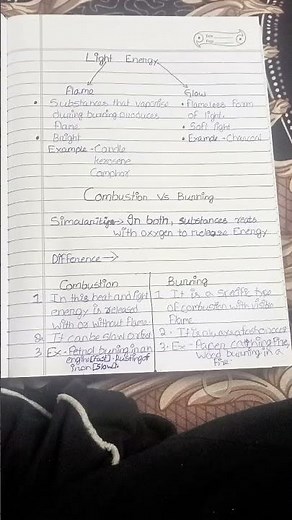 Light Energy
Flame
• Substances that vaporise
during buring produces
flame.
• Bright
Example - Candle
kerosene
Camphor
Glow
• flameless form
of light.
• Soft light
• Example - Charcoal
Combustion Vs Burning
Similarities → In both, substances reats
with oxygen to release Energy
Difference →
Combustion
1. In this heat and light
energy is released
with or without flame
2. It can be slow or fast
3. Ex - Petrol burning in an
engine [fast], Rusting of
iron [Slow].
Burning
1. It is a specific type
of combustion with visible
flame
2. It is always fast
3. Ex - Paper catching fire,
wood burning in a
fire.